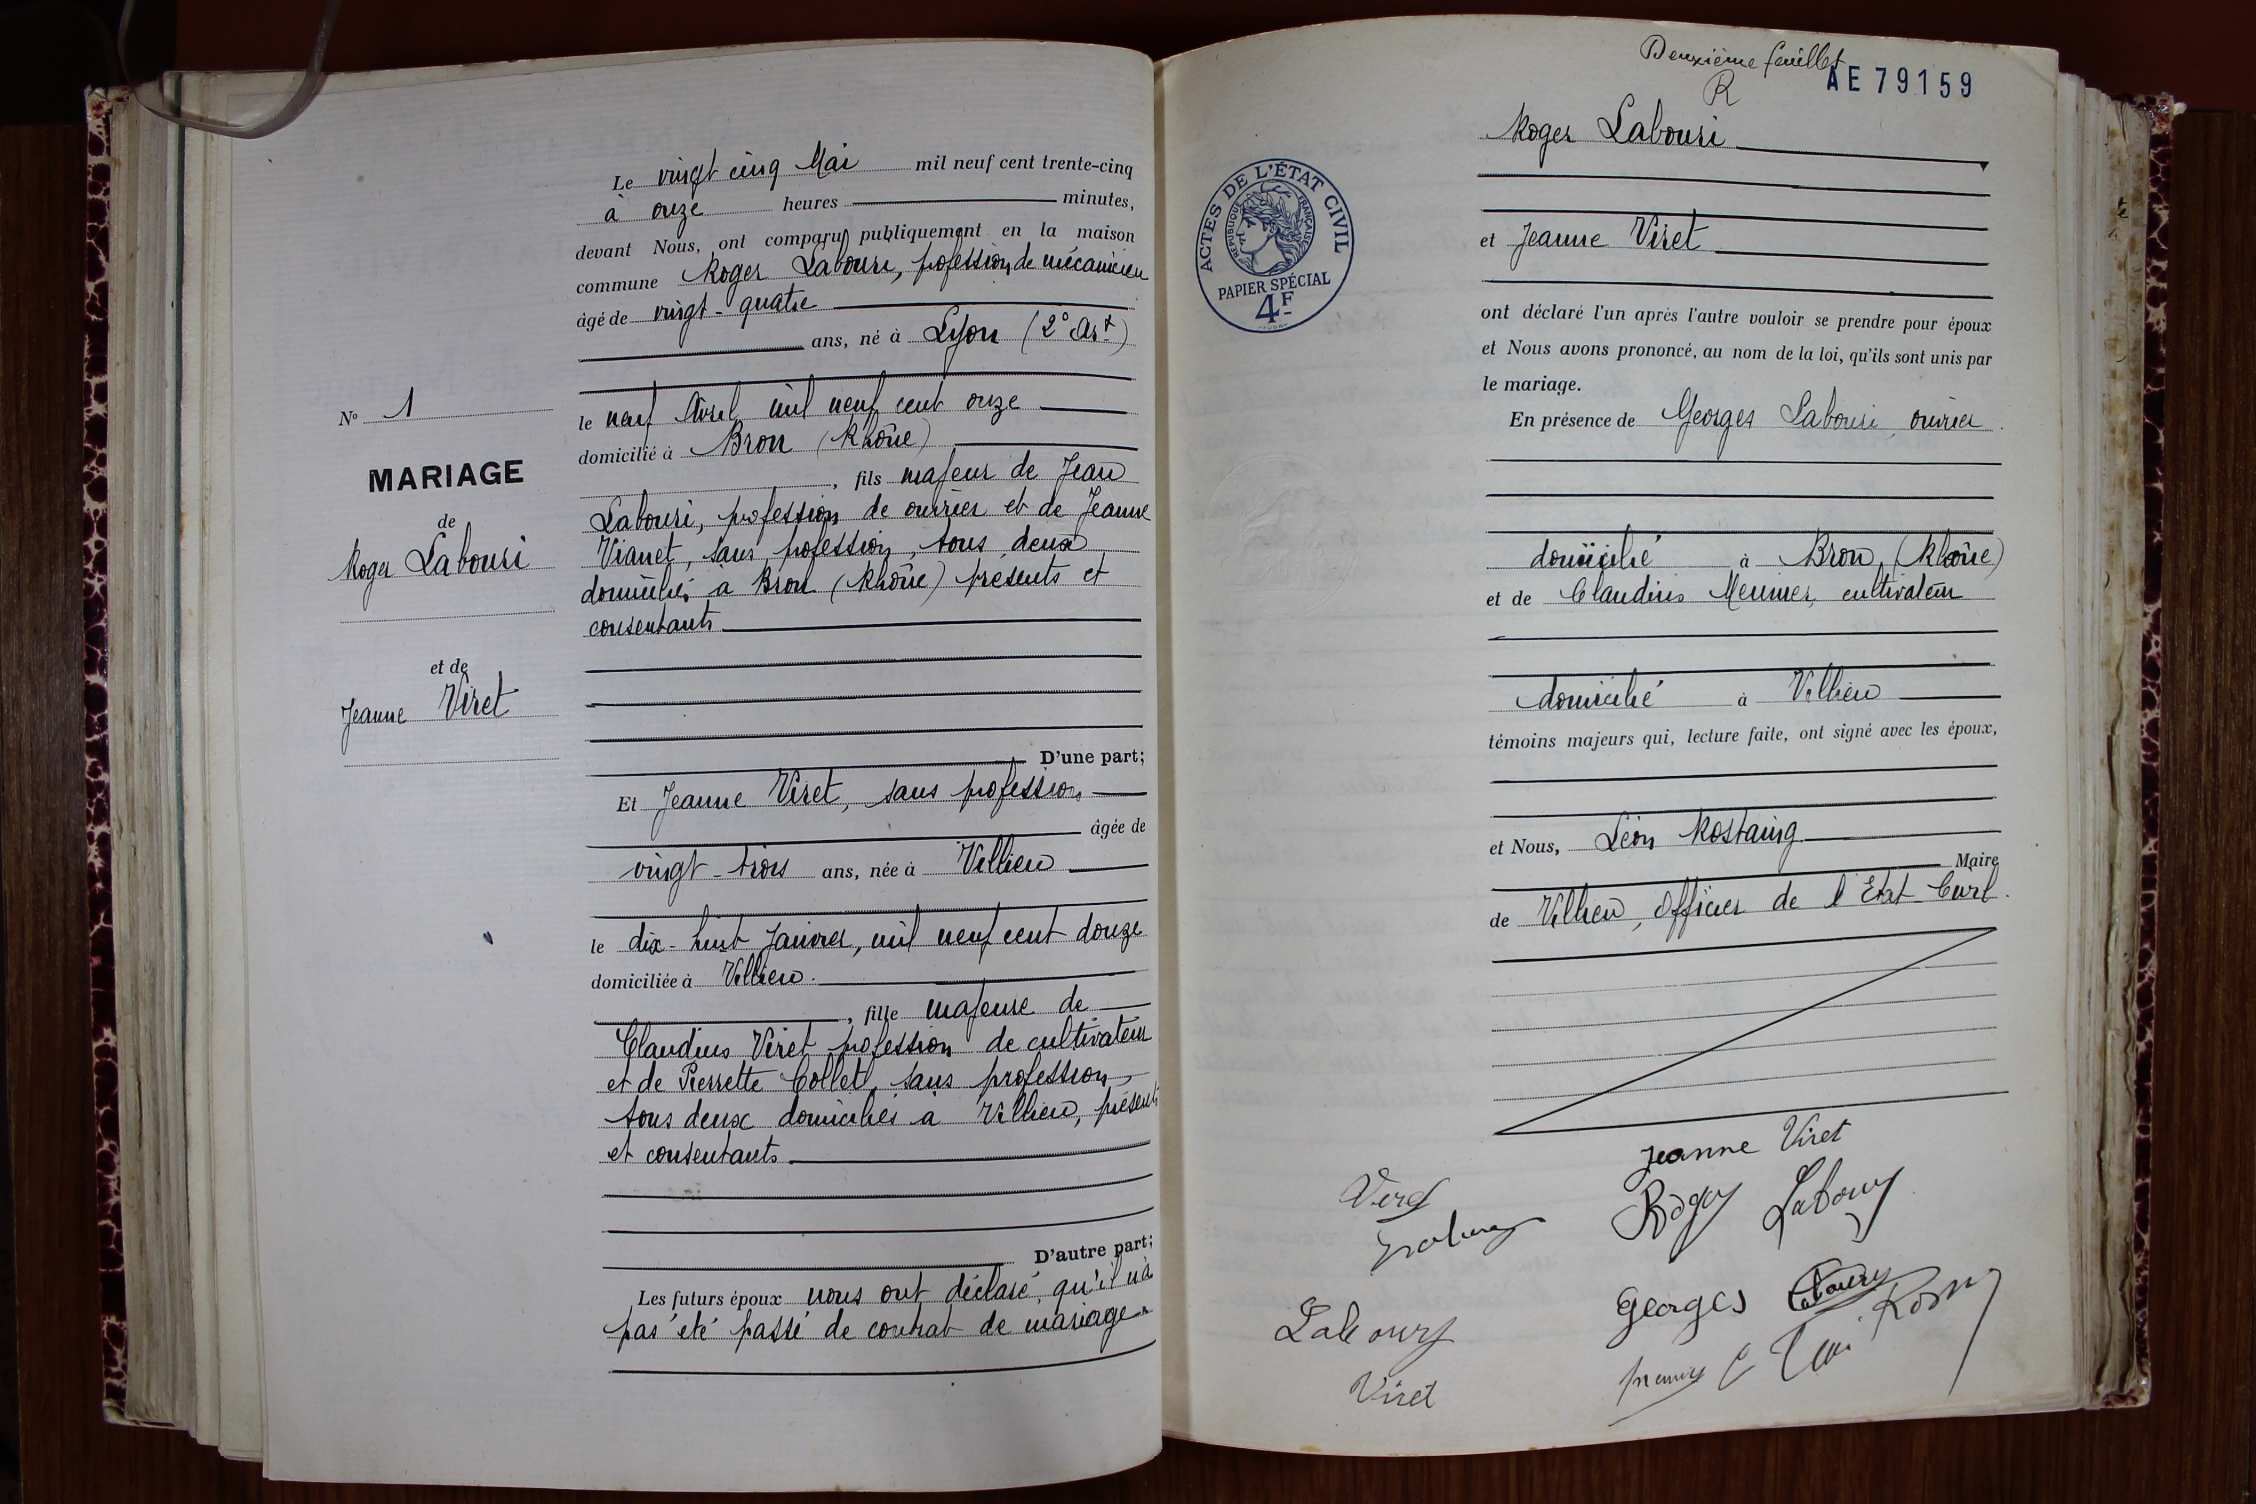 Le vingt cinq Mai mil neuf cent trente-cinq
à onze heures minutes,
devant Nous, ont comparu publiquement en la maison
commune Roger Labouri, profession de mécanicien
âgé de vingt-quatre
ans, né à Lyon (2e Art)
No 1
le neuf Avril mil neuf cent onze
domicilié à Bron (Rhône)
MARIAGE
, fils majeur de Jean
de
Labouri, profession de ouvrier et de Jeanne
Roger Labouri
Vianet, sans profession, tous deux
domiciliés à Bron (Rhône) présents et
consentants
et de
Jeanne Viret
D'une part;
Et Jeanne Viret, sans profession
âgée de
vingt-trois ans, née à Villieu
le dix-huit Janvier, mil neuf cent douze
domiciliée à Villieu.
, fille majeure de
Claudius Viret profession de cultivateur
et de Pierrette Collet, sans profession,
tous deux domiciliés à Villieu, présents
et consentants
D'autre part;
Les futurs époux nous ont déclaré, qu'il n'a
pas été passé de contrat de mariage.
Deuxième feuillet
R
AE 79159
ACTES DE L'ÉTAT CIVIL
RÉPUBLIQUE FRANÇAISE
PAPIER SPÉCIAL
4F
Roger Labouri
et Jeanne Viret
ont déclaré l'un après l'autre vouloir se prendre pour époux
et Nous avons prononcé, au nom de la loi, qu'ils sont unis par
le mariage.
En présence de Georges Labouri, ouvrier
domicilié à Bron, (Rhône)
et de Claudius Meunier, cultivateur
domicilié à Villieu
témoins majeurs qui, lecture faite, ont signé avec les époux,
et Nous, Léon Rostaing
Maire
de Villieu, Officier de l'Etat-Civil.
Jeanne Viret
Viret
Roger Laboury
Georges Laboury
Laboury
Viret